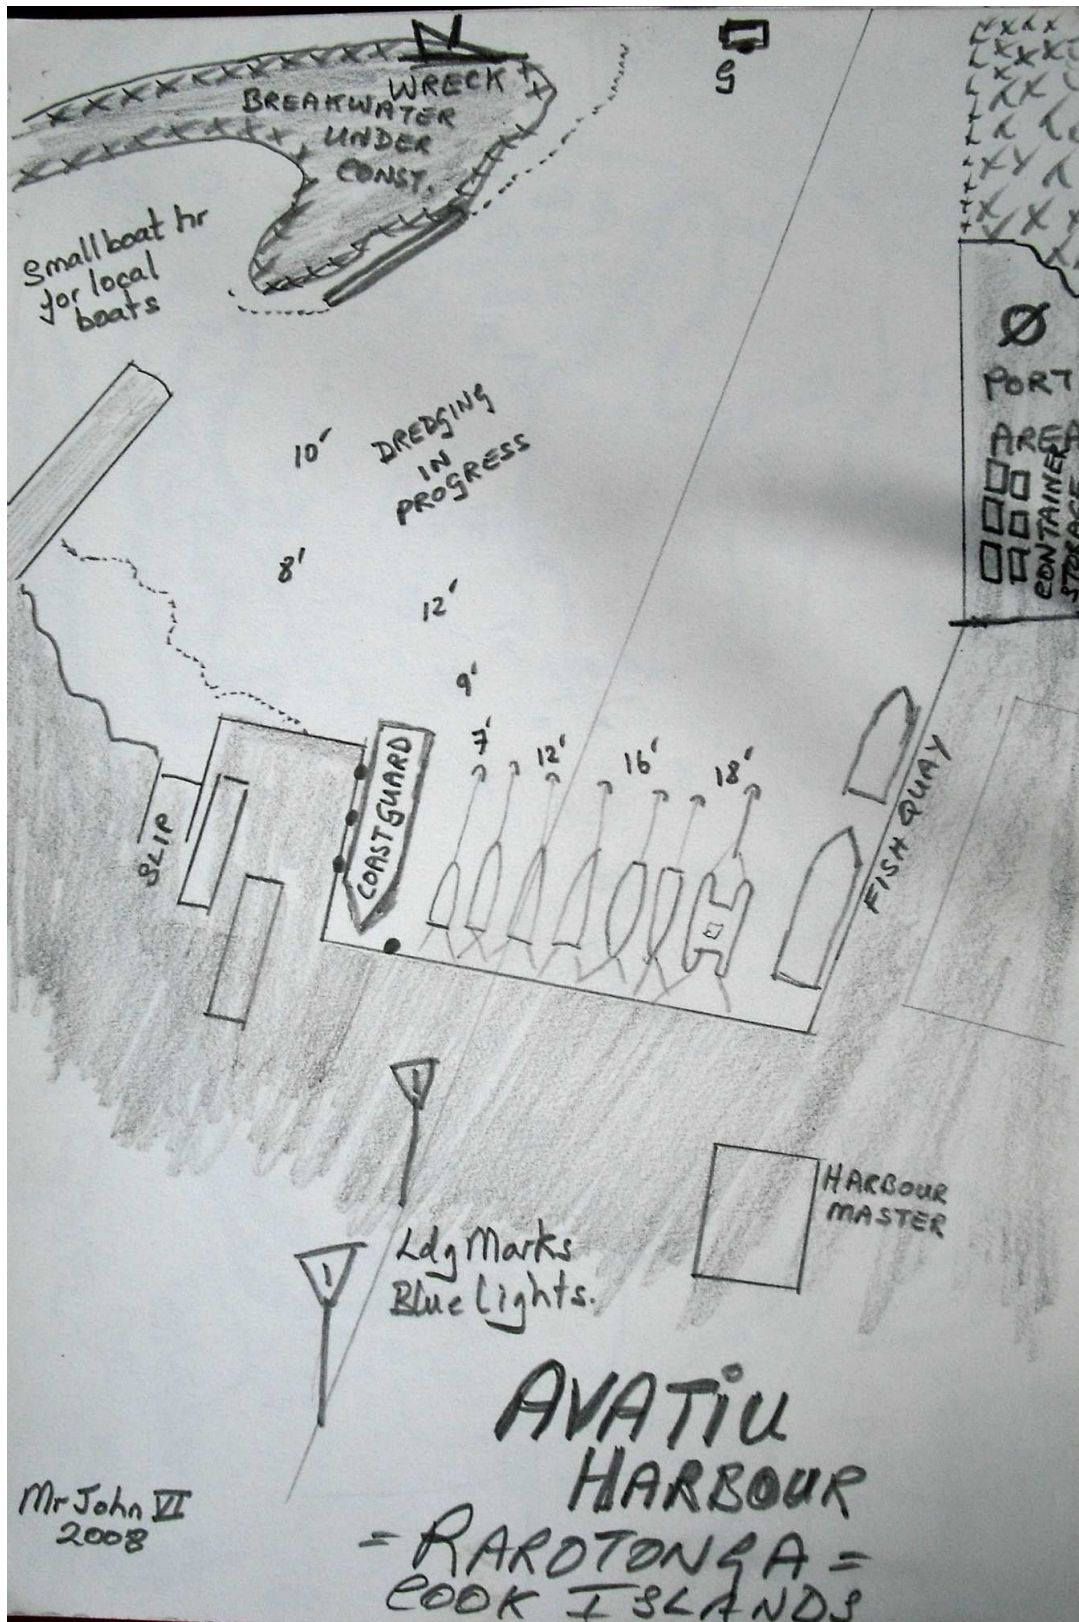 WRECK
BREAKWATER
UNDER
CONST.
G
Small boat hr
for local
boats
Ø
PORT
AREA
CONTAINER
STORAGE
10'
DREDGING
IN
PROGRESS
8'
12'
9'
7'
12'
16'
18'
COASTGUARD
SLIP
FISH QUAY
HARBOUR
MASTER
Ldg Marks
Blue lights.
AVATIU
HARBOUR
= RAROTONGA =
COOK ISLANDS
Mr John VI
2008